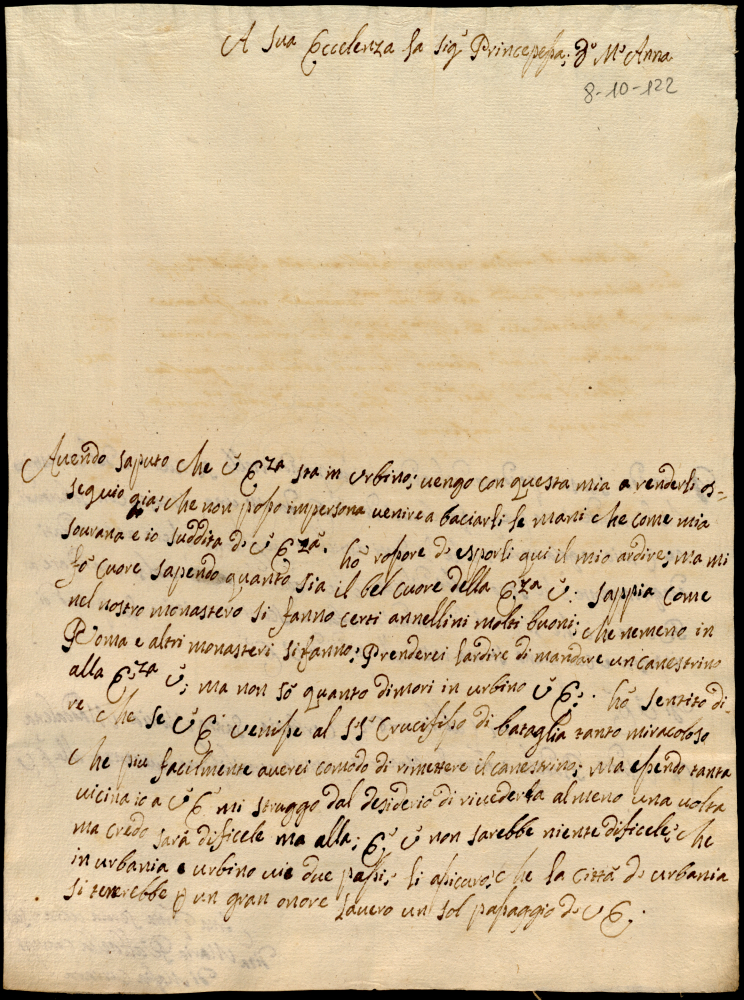 A Sua Eccelenza la Sig.ª Principessa; D.ª M.ª Anna
8-10-122
Avendo saputo che V Ecza sta in Urbino; vengo con questa mia a renderli os=
sequio gia; che non posso impersona venire a baciarli le mani che come mia
sourana e io suddita di V Ecza. hò rossore d'esporli qui il mio ardire; ma mi
fò cuore sapendo quanto sia il bel cuore della Ecza V: sappia come
nel nostro monastero si fanno certi annellini molti buoni; che nemeno in
Roma e altri monasteri si fanno; Prenderei l'ardire di mandare un canestrino
alla Ecza V; ma non sò quanto dimori in urbino V E: hò sentito di=
re che se V E venisse al SS Crucifisso di bataglia tanto miracoloso
che piu facilmente averei comodo di rimettere il canestrino; ma essendo tanta
vicina io a V E mi struggo dal desiderio di rivederla almeno una volta
ma credo sarà dificele ma alla; E V non sarebbe niente dificele; che
in urbania e urbino vie due passi; li assicuro; che la Città d' urbania
si tenerebbe p un gran onore davero un sol passaggio d V E;